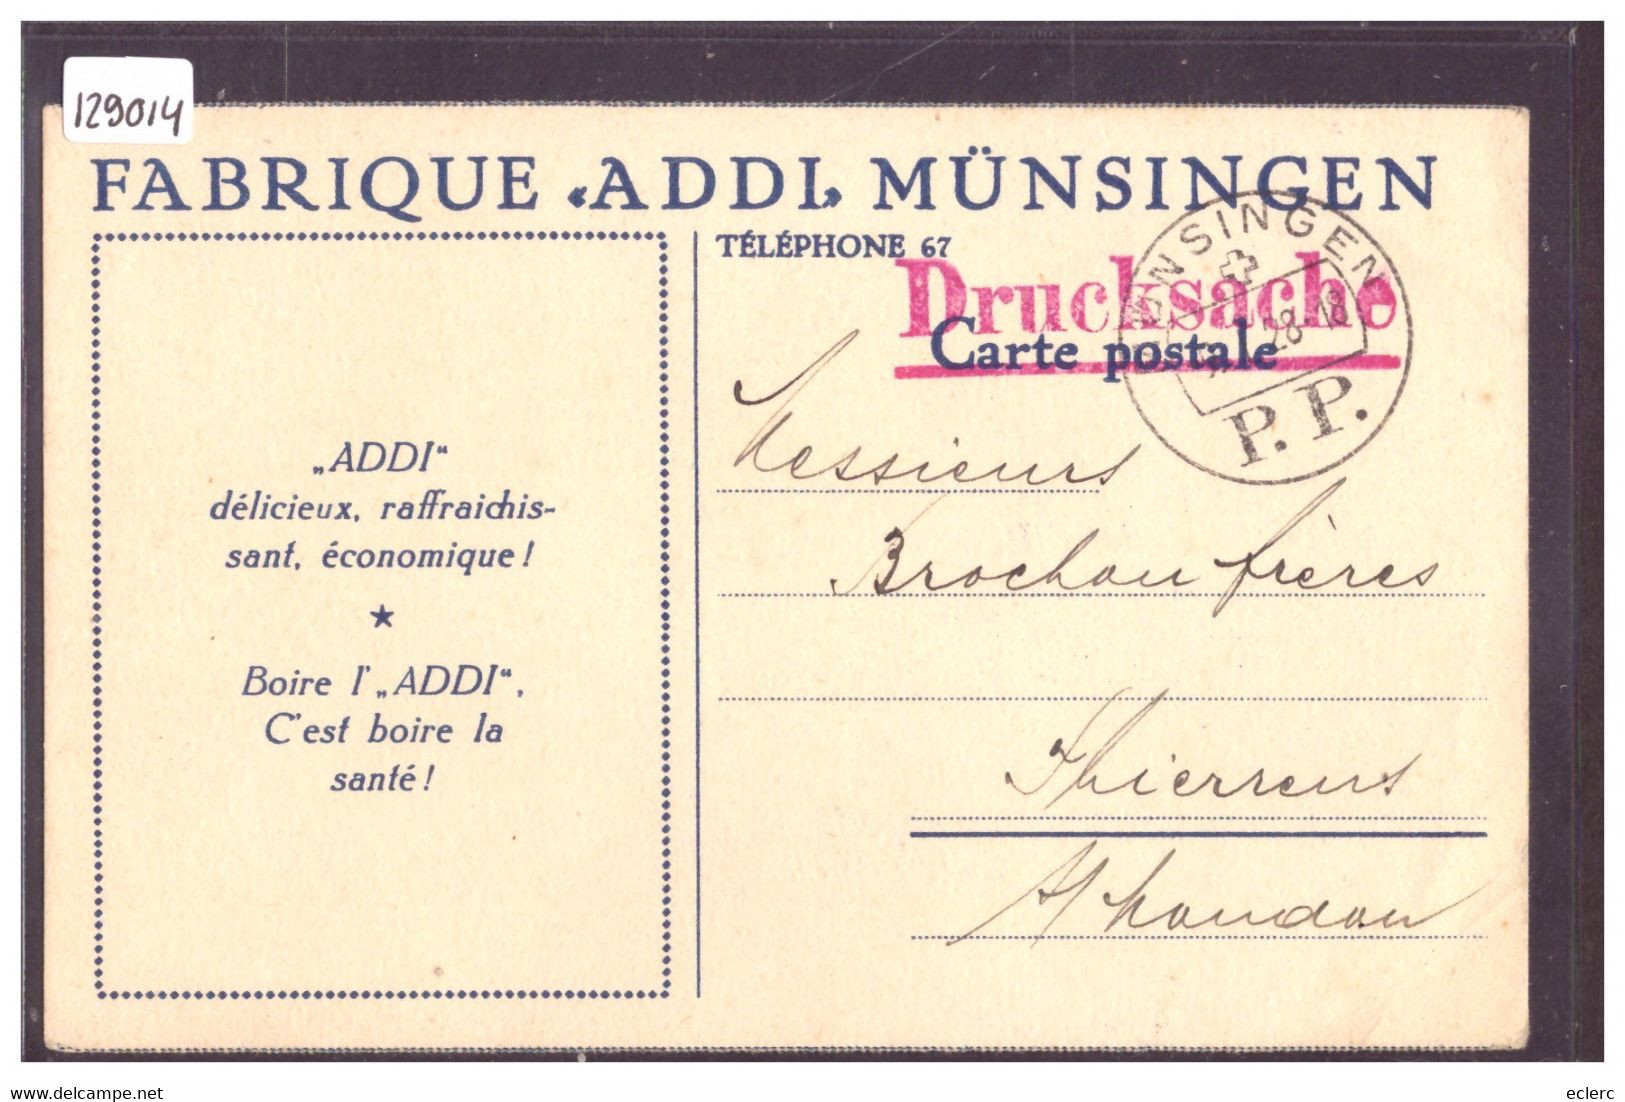 129014
FABRIQUE «ADDI» MÜNSINGEN
TÉLÉPHONE 67
Drucksache
Carte postale
MÜNSINGEN
28-18
P.P.
„ADDI“
délicieux, raffraichis-
sant, économique!
★
Boire l'„ADDI“,
C'est boire la
santé!
Messieurs
Brochon frères
Thierrens
s/ Moudon
eclerc
www.delcampe.net